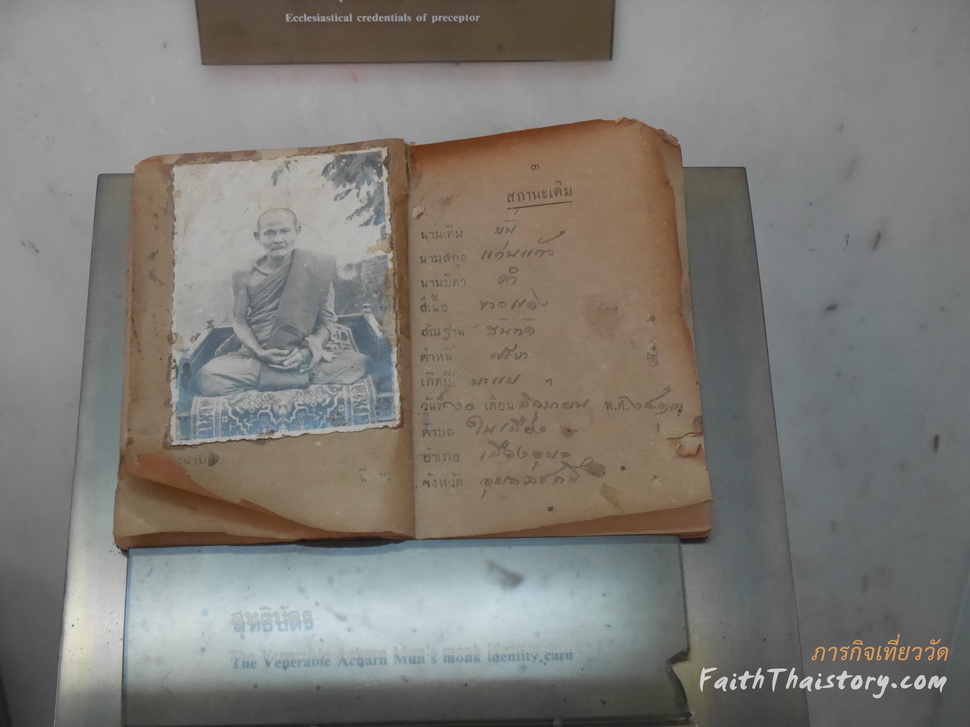 Ecclesiastical credentials of preceptor
๓
สถานะเดิม
นามเดิม มั่น
นามสกุล แก่นแก้ว
นามบิดา คำ
สีเนื้อ ขาวแดง
สัณฐาน สันทัด
ตำหนิ
เกิดปี มะแม
วันที่ ๒๐ เดือน พ.ศ.
ตำบล ในเมือง
อำเภอ เมืองอุบล
จังหวัด อุบลราชธานี
สุทธิบัตร
The Venerable Acharn Mun's monk identity card
ภารกิจเที่ยววัด
FaithThaistory.com